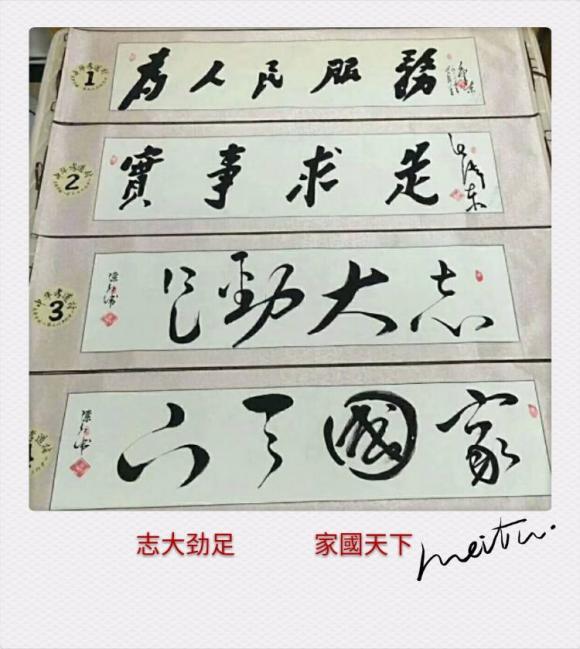 1
為人民服務
2
實事求是
毛澤东
3
志大勁足
家國天下
志大劲足 家國天下
meitu.